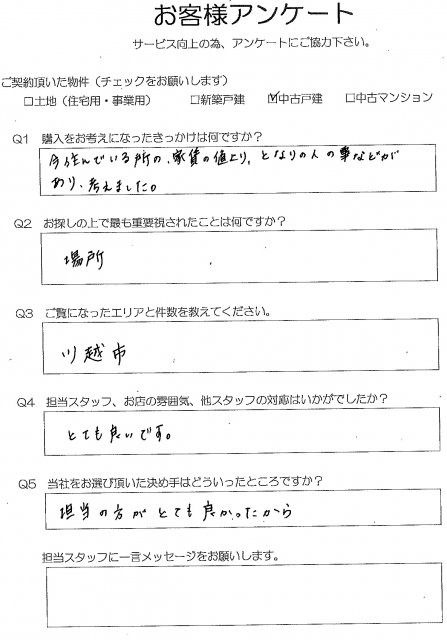 お客様アンケート
サービス向上の為、アンケートにご協力下さい。
ご契約頂いた物件（チェックをお願いします）
□土地（住宅用・事業用） □新築戸建 ☑中古戸建 □中古マンション
Q1 購入をお考えになったきっかけは何ですか？
今住んでいる所の、家賃の値上り、となりの人の事などが
あり、考えました。
Q2 お探しの上で最も重要視されたことは何ですか？
場所
Q3 ご覧になったエリアと件数を教えてください。
川越市
Q4 担当スタッフ、お店の雰囲気、他スタッフの対応はいかがでしたか？
とても良いです。
Q5 当社をお選び頂いた決め手はどういったところですか？
担当の方がとても良かったから
担当スタッフに一言メッセージをお願いします。